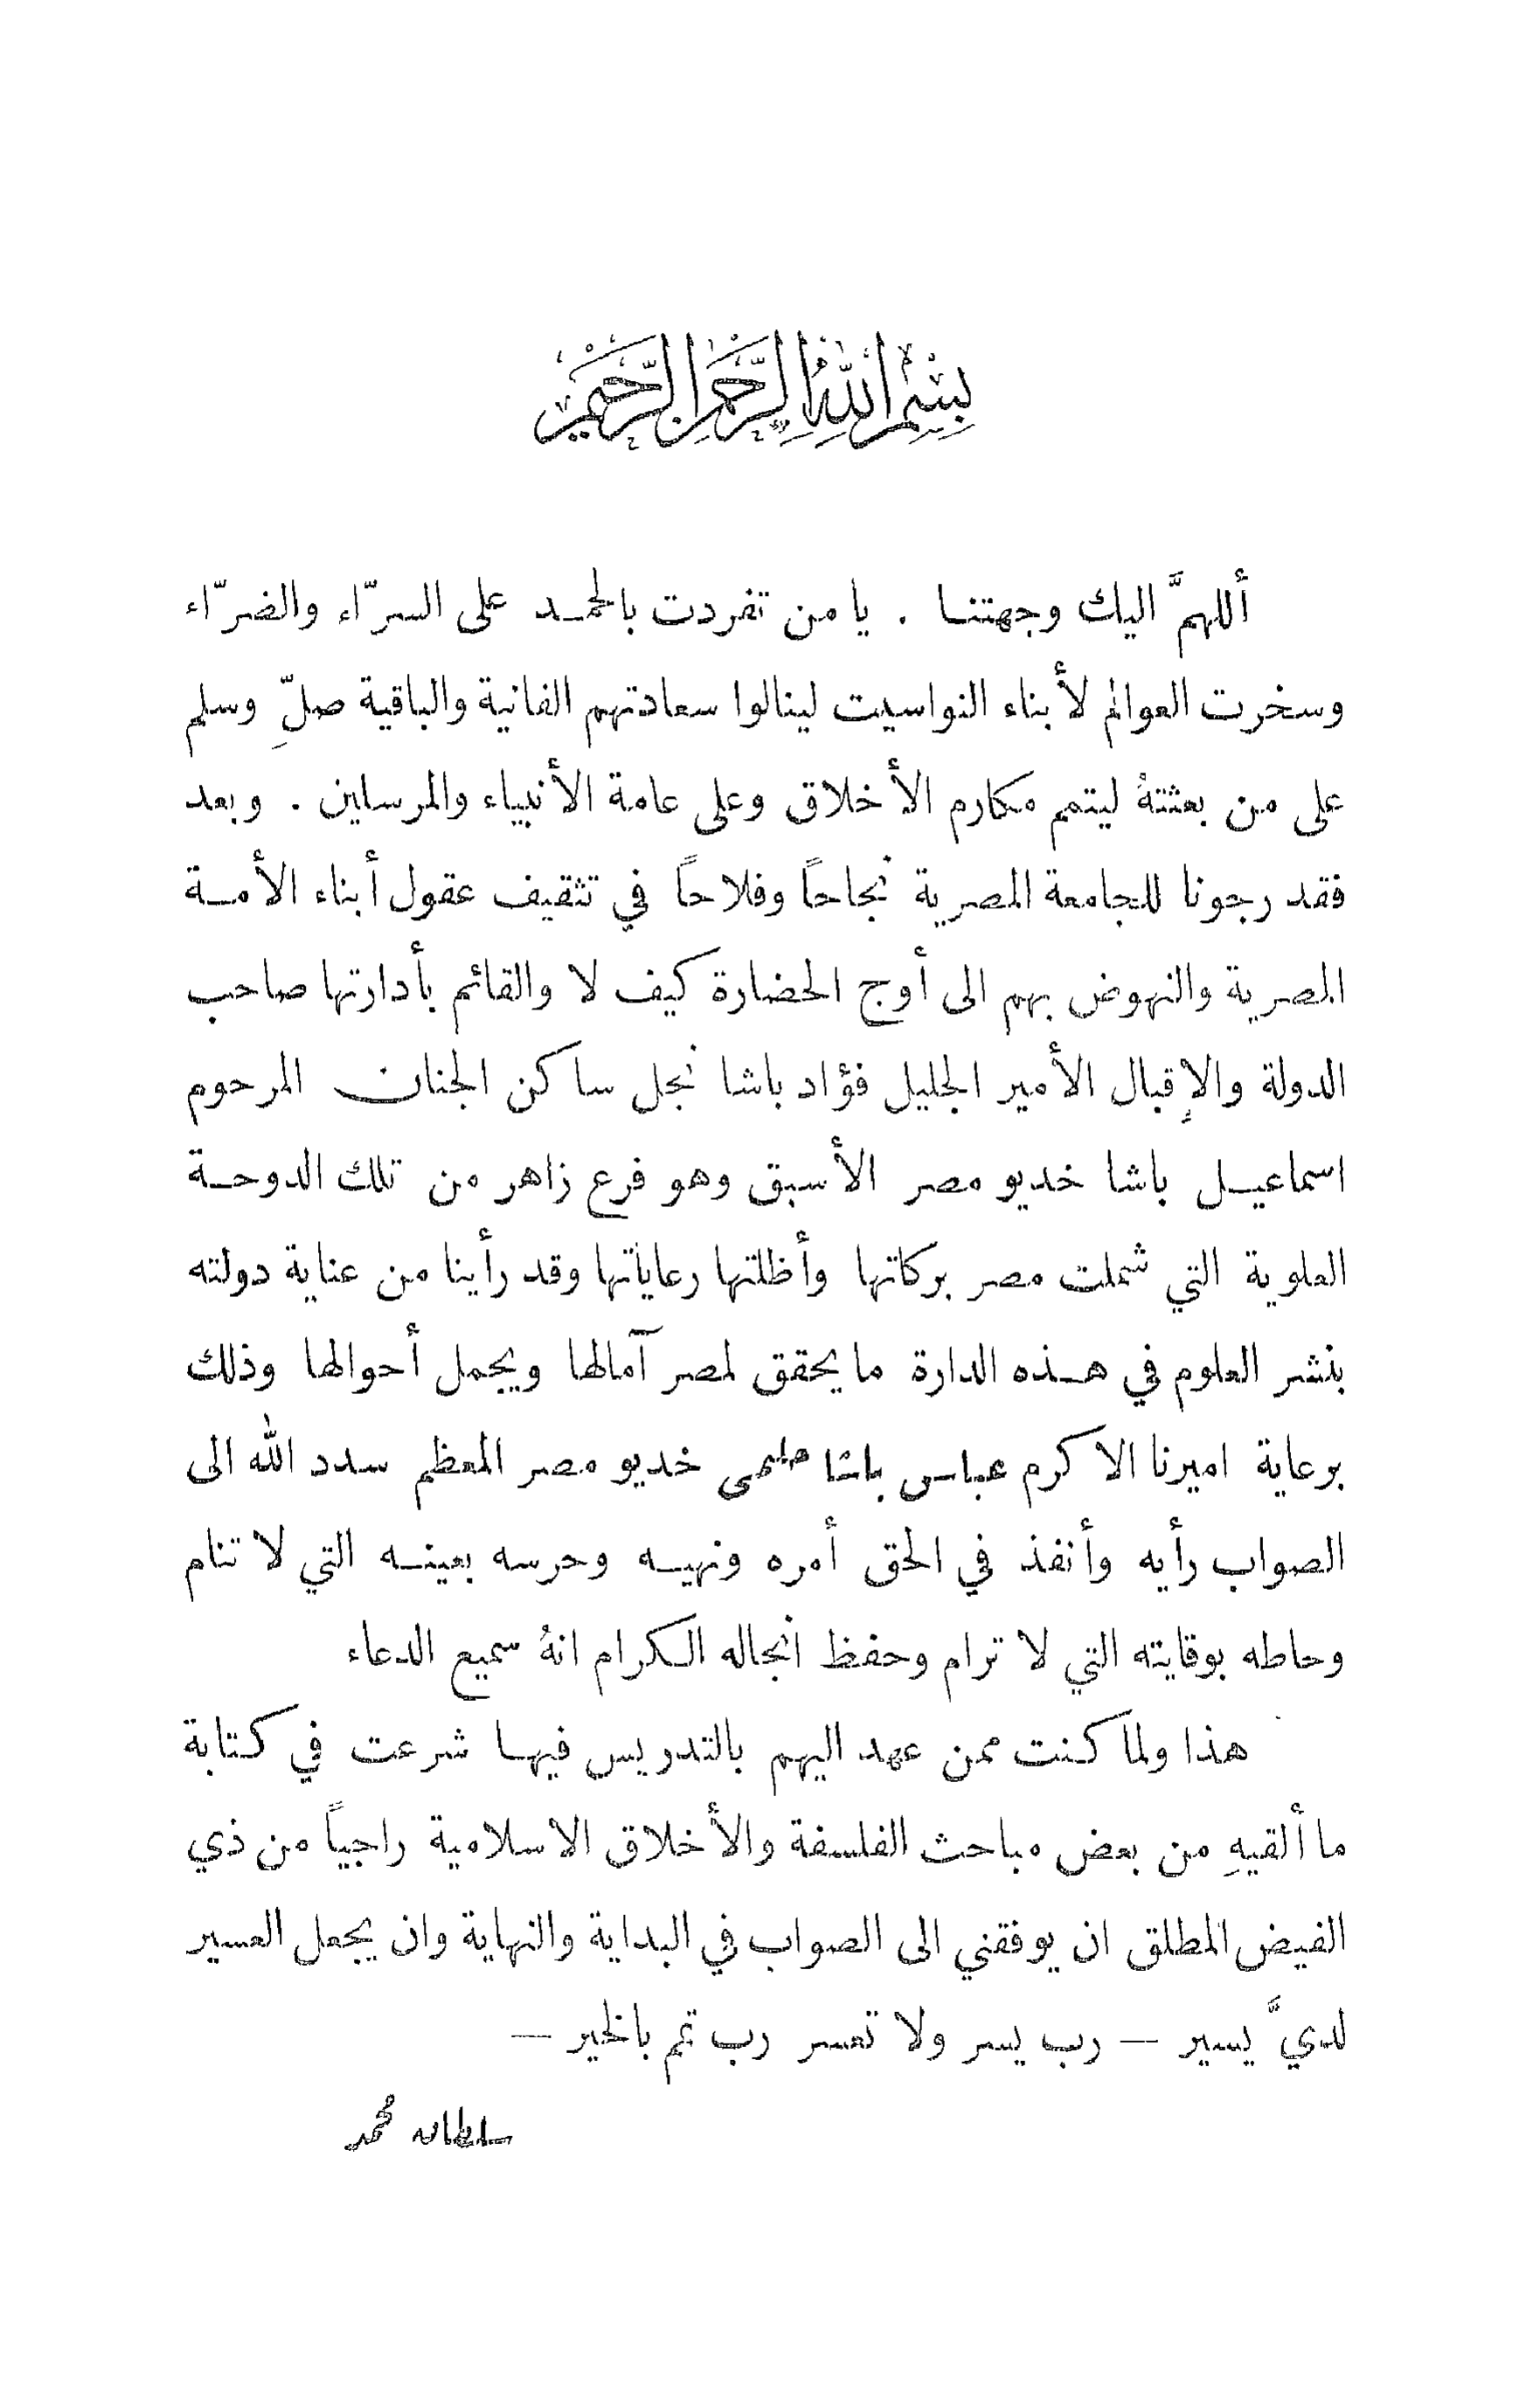 بِسْمِ اللهِ الرَّحْمٰنِ الرَّحِيمِ
أللهمَّ اليك وجهتنا . يا من تفردت بالحمد على السرّاء والضرّاء
وسخرت العوالم لأبناء النواسيت لينالوا سعادتهم الفانية والباقية صلِّ وسلم
على من بعثتهُ ليتمم مكارم الأخلاق وعلى عامة الأنبياء والمرسلين . وبعد
فقد رجونا للجامعة المصرية نجاحاً وفلاحاً في تثقيف عقول أبناء الأمة
المصرية والنهوض بهم الى أوج الحضارة كيف لا والقائم بأدارتها صاحب
الدولة والإقبال الأمير الجليل فؤاد باشا نجل ساكن الجنان المرحوم
اسماعيل باشا خديو مصر الأسبق وهو فرع زاهر من تلك الدوحة
العلوية التي شملت مصر بركاتها وأظلتها رعاياتها وقد رأينا من عناية دولته
بنشر العلوم في هذه الدارة ما يحقق لمصر آمالها ويجمل أحوالها وذلك
برعاية اميرنا الاكرم عباس باشا حلمى خديو مصر المعظم سدد الله الى
الصواب رأيه وأنفذ في الحق أمره ونهيه وحرسه بعينه التي لا تنام
وحاطه بوقايته التي لا ترام وحفظ انجاله الكرام انهُ سميع الدعاء
هذا ولما كنت ممن عهد اليهم بالتدريس فيها شرعت في كتابة
ما ألقيهِ من بعض مباحث الفلسفة والأخلاق الاسلامية راجياً من ذي
الفيض المطلق ان يوفقني الى الصواب في البداية والنهاية وان يجعل العسير
لديَّ يسير — رب يسر ولا تعسر رب تمم بالخير —
سلطان محمد